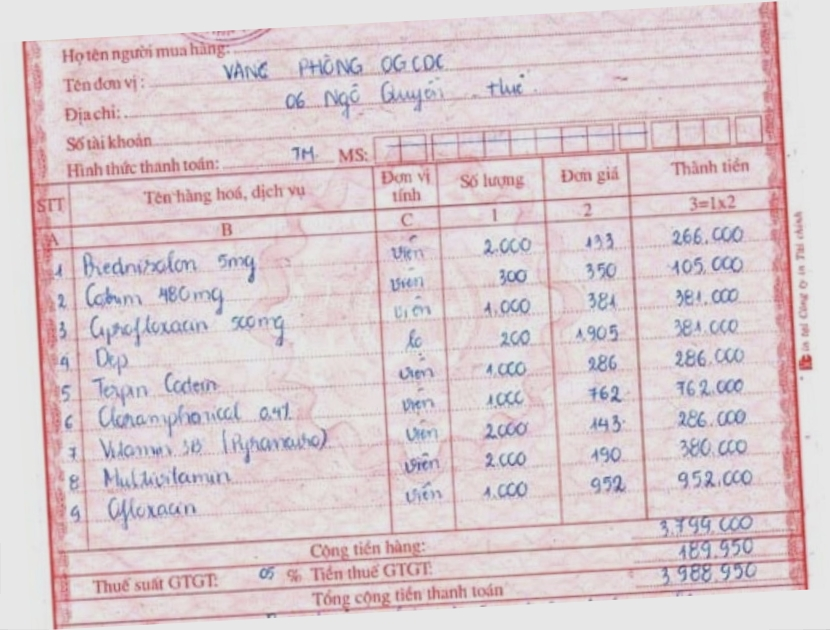 Họ tên người mua hàng:
Tên đơn vị: VĂNG PHÒNG OGCDC
Địa chỉ: 06 Ngô Quyền Huế
Số tài khoản
Hình thức thanh toán: TM. MS:
STT Tên hàng hoá, dịch vụ Đơn vị tính Số lượng Đơn giá Thành tiền
A B C 1 2 3=1x2
1 Prednisolon 5mg viên 2.000 133 266.000
2 Cotrim 480mg viên 300 350 105.000
3 Ciprofloxacin 500mg viên 1.000 381 381.000
4 Dep lọ 200 1.905 381.000
5 Terpin Codein viên 1.000 286 286.000
6 Cloramphenicol 0,4% viên 1.000 762 762.000
7 Vitamin 3B viên 2.000 143 286.000
8 Multivitamin viên 2.000 190 380.000
9 Ofloxacin viên 1.000 952 952.000
Cộng tiền hàng: 3.799.000
Thuế suất GTGT: 05 % Tiền thuế GTGT: 189.950
Tổng cộng tiền thanh toán 3.988.950
in tại Công ty in Tài chính